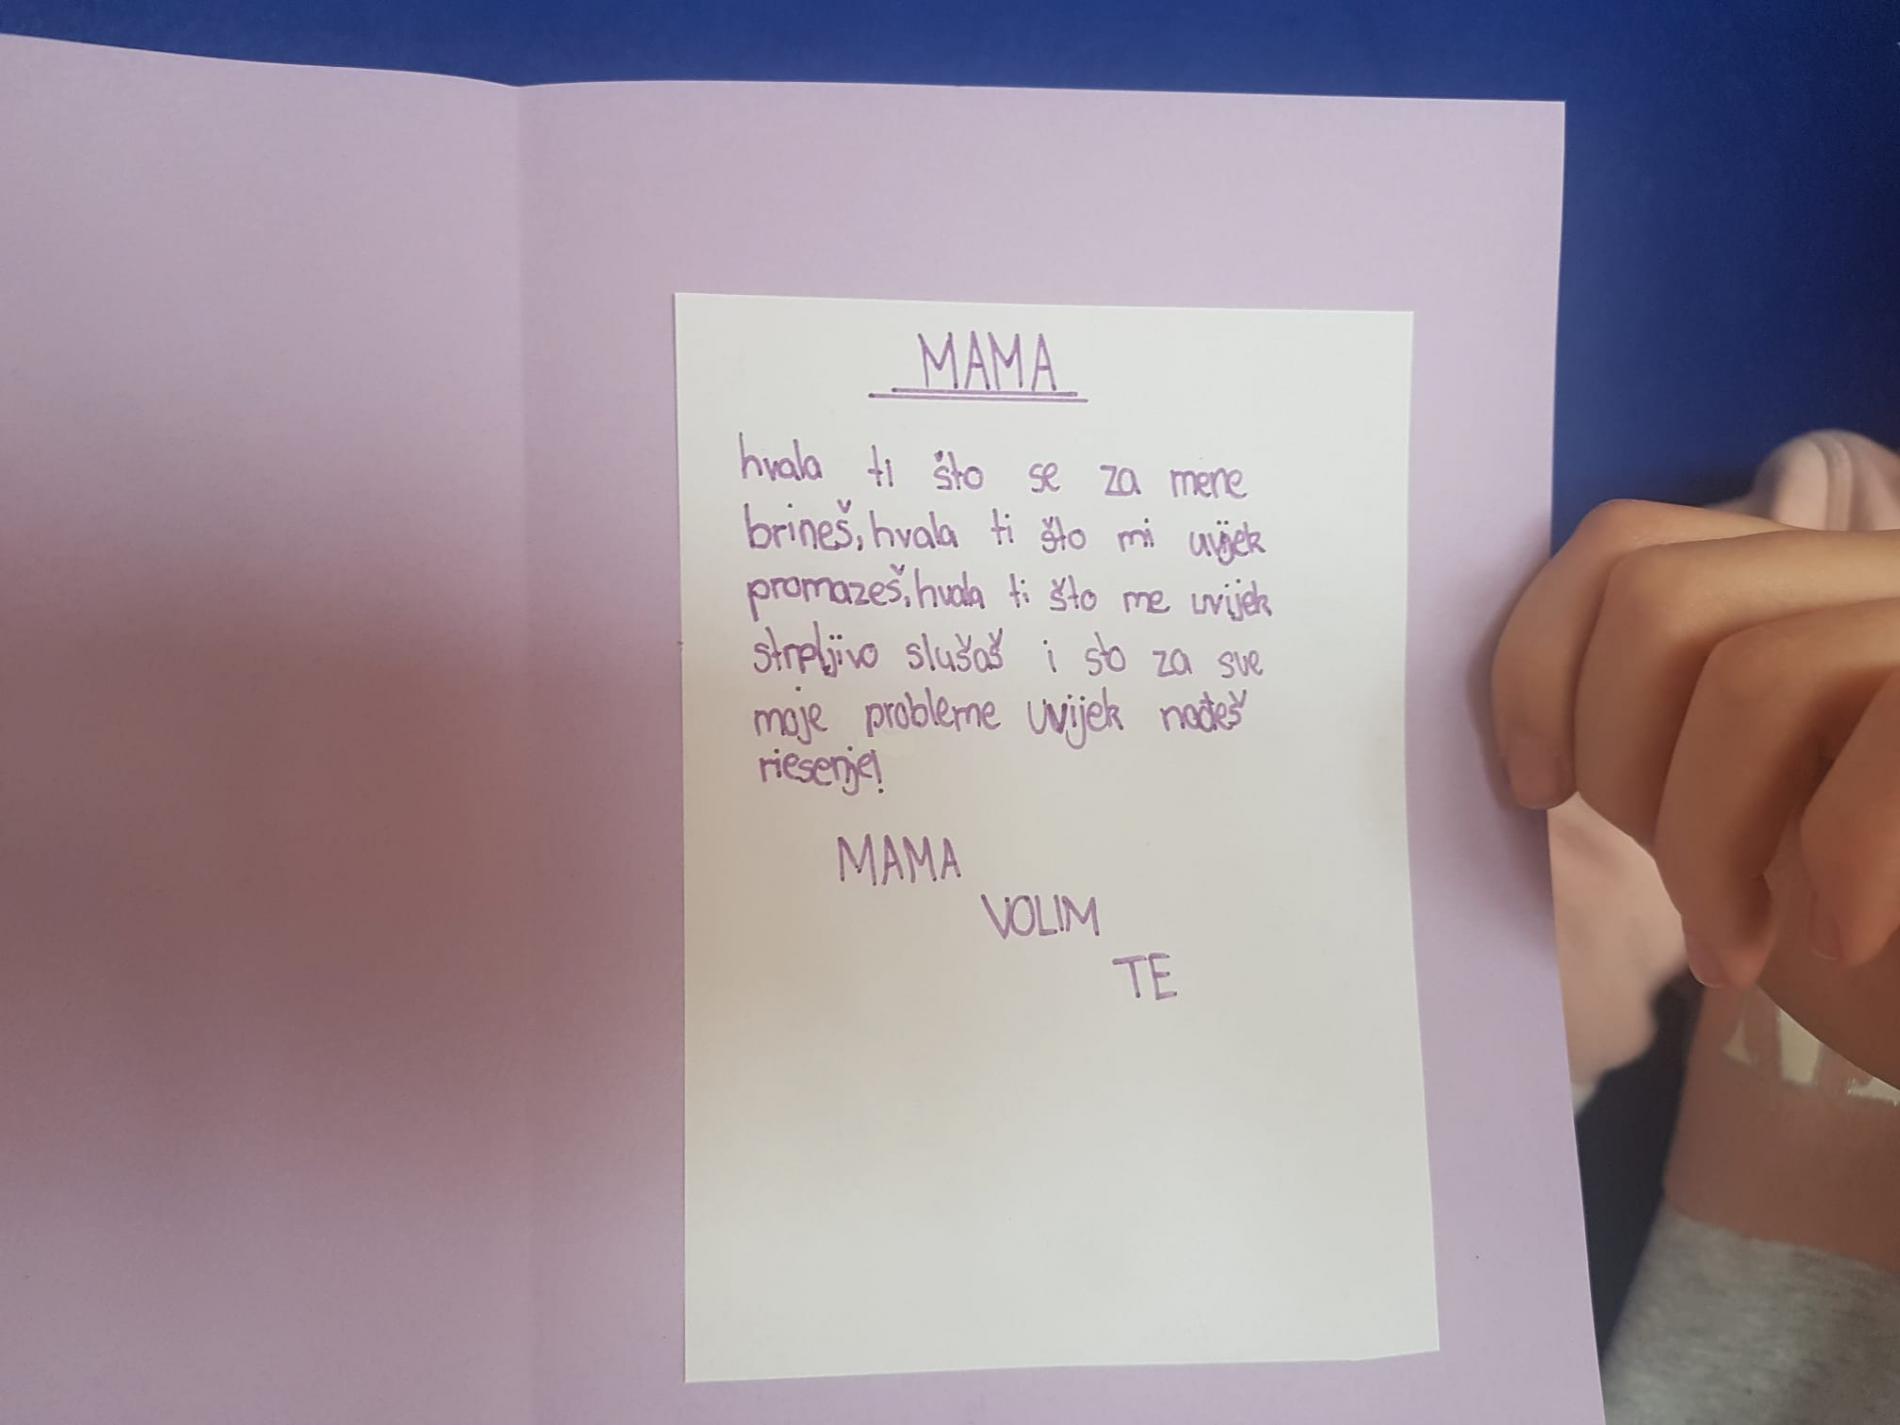 MAMA
hvala ti što se za mene
brineš, hvala ti što mi uvijek
promazeš, hvala ti što me uvijek
strpljivo slušaš i sto za sve
moje probleme uvijek nađeš
riesenje!
MAMA
VOLIM
TE